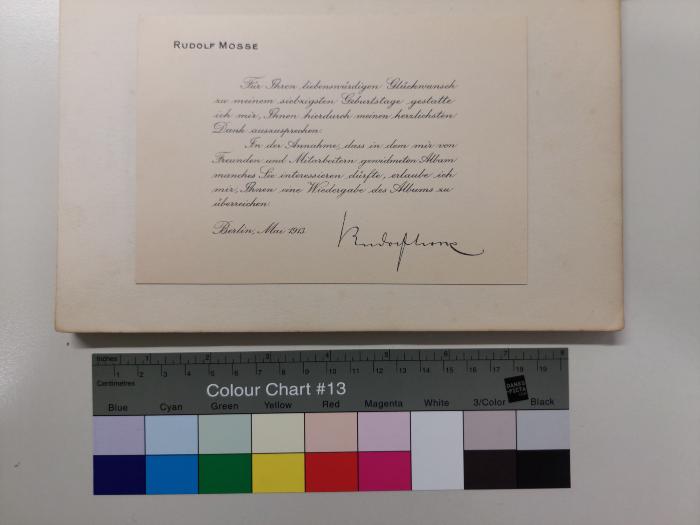 RUDOLF MOSSE
Für Ihren liebenswürdigen Glückwunsch
zu meinem siebzigsten Geburtstage gestatte
ich mir, Ihnen hierdurch meinen herzlichsten
Dank auszusprechen.
In der Annahme, dass in dem mir von
Freunden und Mitarbeitern gewidmeten Album
manches Sie interessieren dürfte, erlaube ich
mir, Ihnen eine Wiedergabe des Albums zu
überreichen.
Berlin, Mai 1913.
Rudolf Mosse
Inches 1 2 3 4 5 6 7 8
1 2 3 4 5 6 7 8 9 10 11 12 13 14 15 16 17 18 19
Centimetres
Colour Chart #13
DANES PICTA
Blue Cyan Green Yellow Red Magenta White 3/Color Black